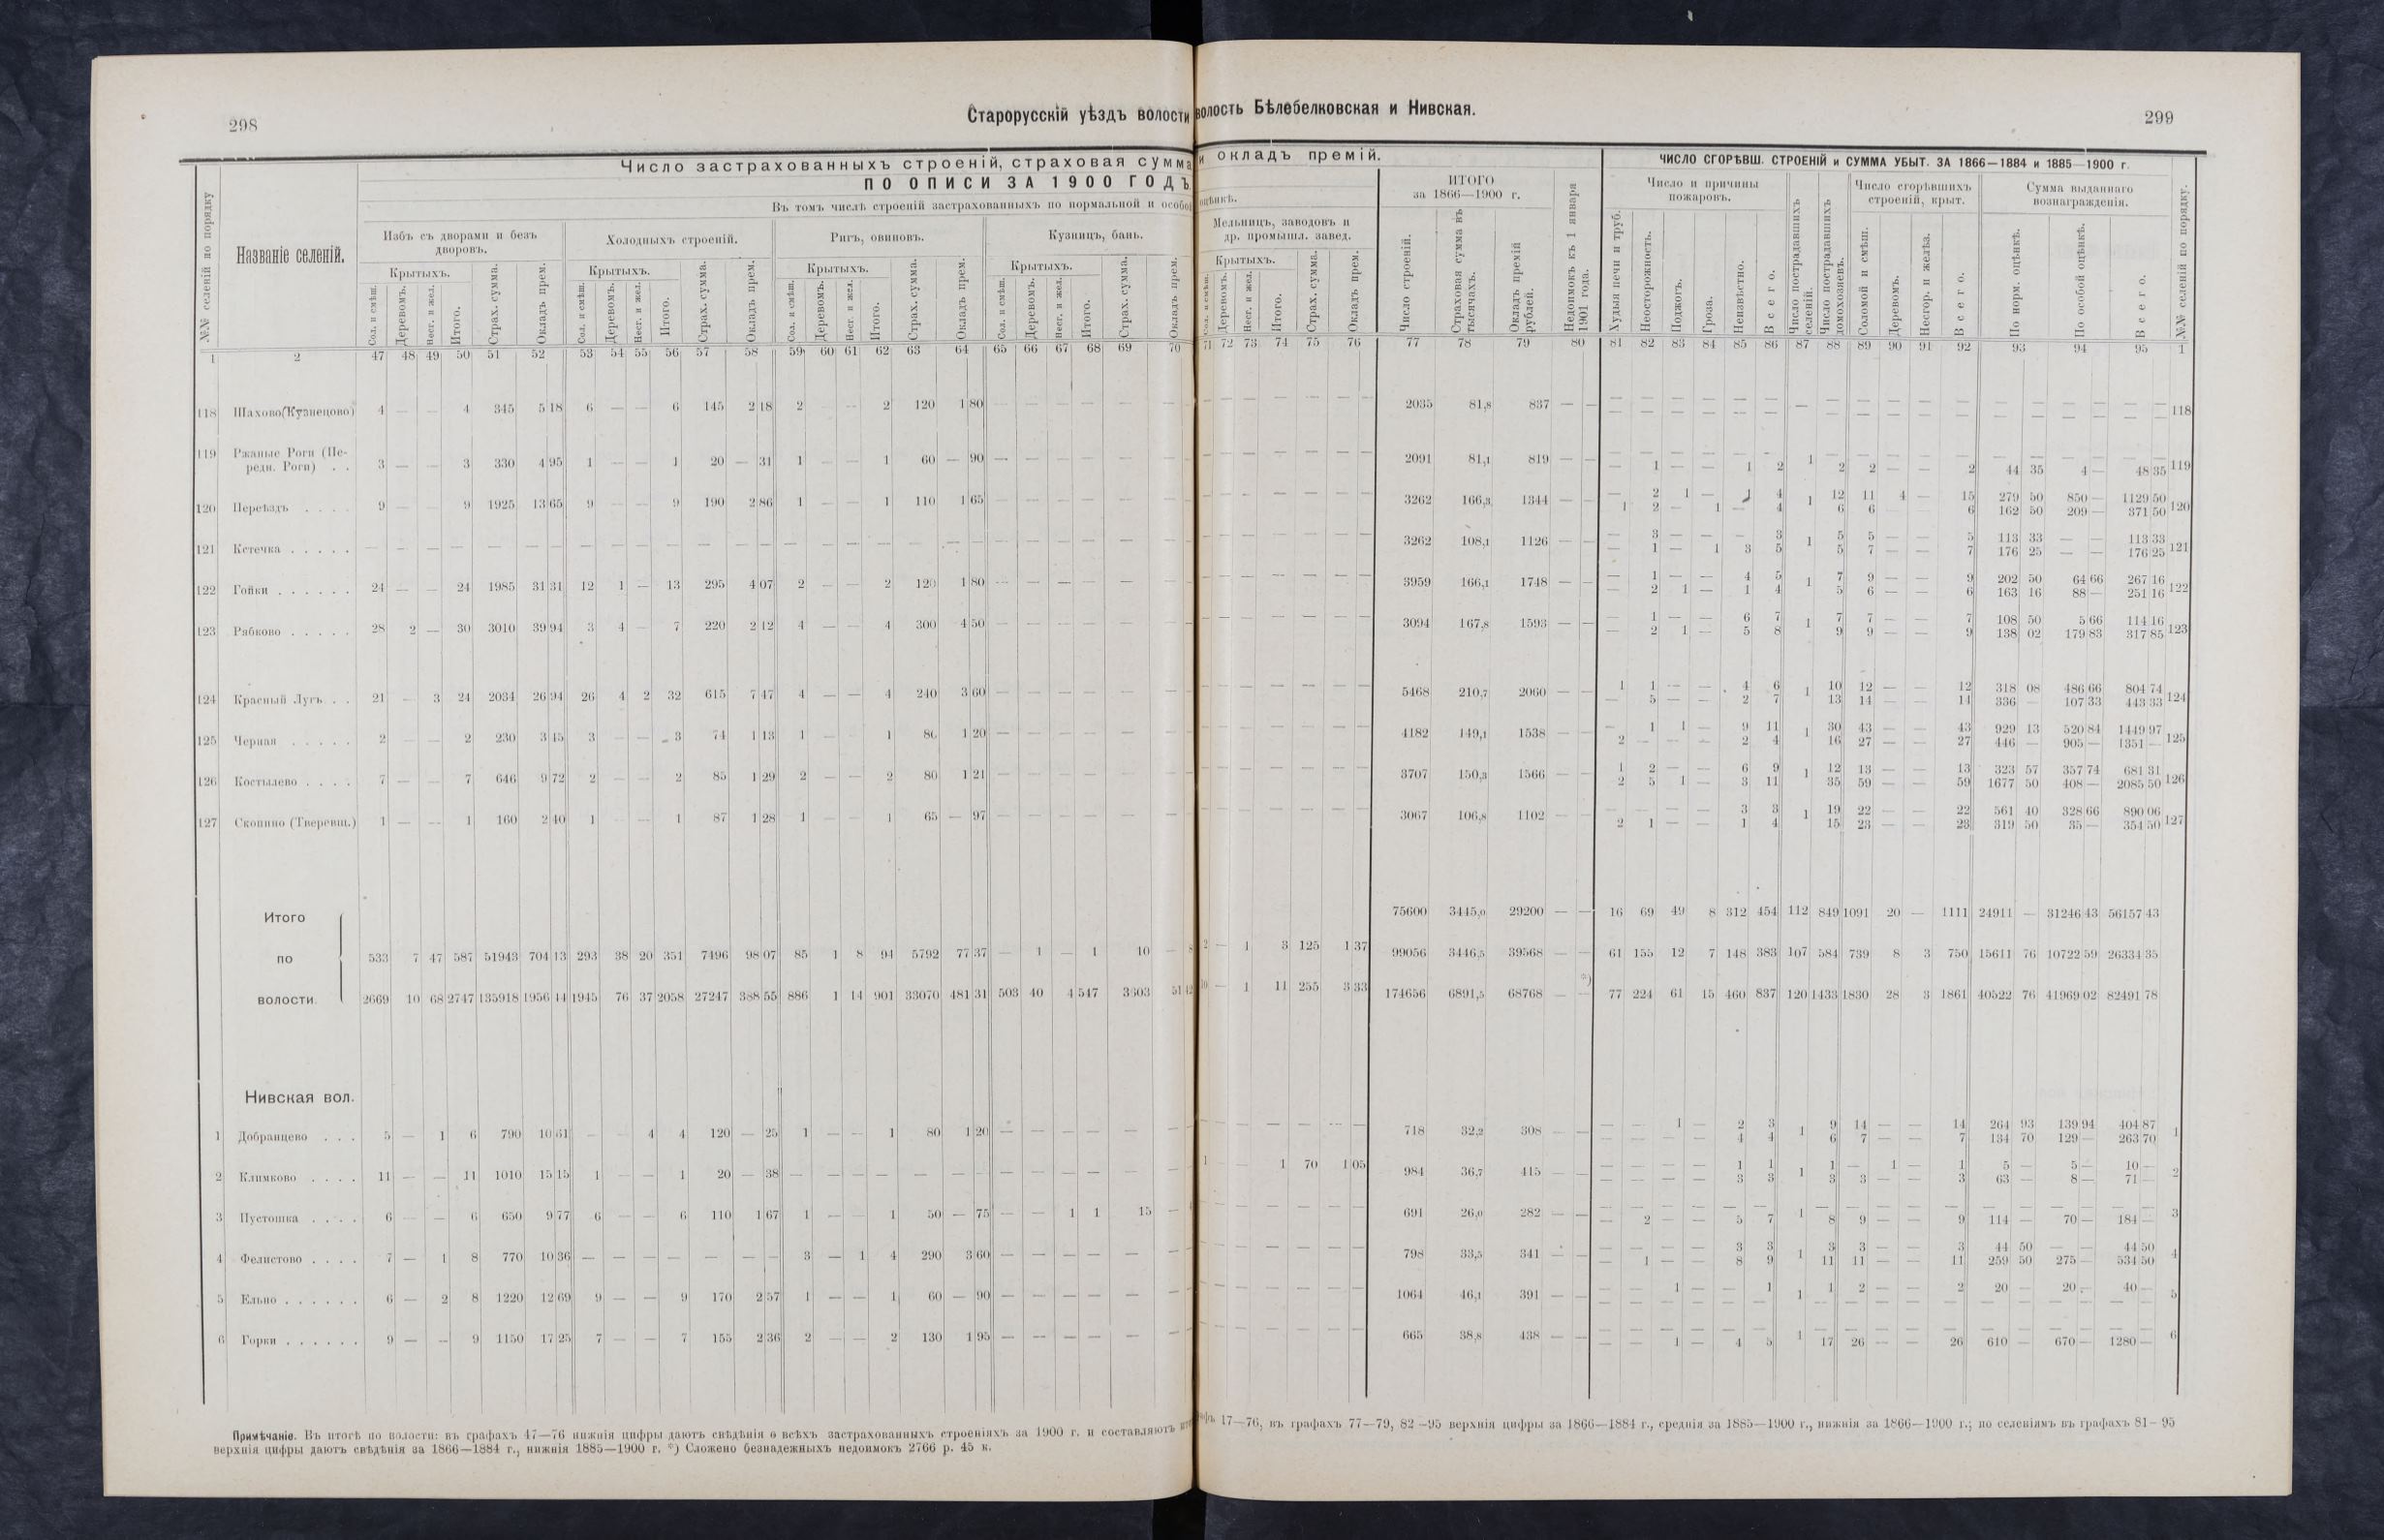 298
Старорусскій уѣздъ волости
волость Бѣлебелковская и Нивская.
299
Число застрахованныхъ строеній, страховая сумма
и окладъ премій.
ПО ОПИСИ ЗА 1900 ГОДЪ
Въ томъ числѣ строеній застрахованныхъ по нормальной и особой
оцѣнкѣ.
ЧИСЛО СГОРѢВШ. СТРОЕНІЙ и СУММА УБЫТ. ЗА 1866—1884 и 1885—1900 г.
№№ селеній по порядку
Названіе селеній.
Избъ съ дворами и безъ
дворовъ.
Холодныхъ строеній.
Ригъ, овиновъ.
Кузницъ, бань.
Мельницъ, заводовъ и
др. промышл. завед.
ИТОГО
за 1866—1900 г.
Недоимокъ къ 1 января
1901 года.
Число и причины
пожаровъ.
Число пострадавшихъ
селеній.
Число пострадавшихъ
домохозяевъ.
Число сгорѣвшихъ
строеній, крыт.
Сумма выданнаго
вознагражденія.
№№ селеній по порядку.
Крытыхъ. Крытыхъ. Крытыхъ. Крытыхъ. Крытыхъ.
Сол. и смѣш. Деревомъ. Несг. и жел. Итого. Страх. сумма. Окладъ прем.
Сол. и смѣш. Деревомъ. Несг. и жел. Итого. Страх. сумма. Окладъ прем.
Сол. и смѣш. Деревомъ. Несг. и жел. Итого. Страх. сумма. Окладъ прем.
Сол. и смѣш. Деревомъ. Несг. и жел. Итого. Страх. сумма. Окладъ прем.
Сол. и смѣш. Деревомъ. Несг. и жел. Итого. Страх. сумма. Окладъ прем.
Число строеній. Страховая сумма въ тысячахъ. Окладъ премій рублей.
Худыя печи и труб. Неосторожность. Поджогъ. Гроза. Неизвѣстно. Всего.
Соломой и смѣш. Деревомъ. Несгор. и желѣз. Всего.
По норм. оцѣнкѣ. По особой оцѣнкѣ. Всего.
1 2 47 48 49 50 51 52 53 54 55 56 57 58 59 60 61 62 63 64 65 66 67 68 69 70 71 72 73 74 75 76 77 78 79 80 81 82 83 84 85 86 87 88 89 90 91 92 93 94 95 1
118 Шахово(Кузнецово) 4 — — 4 345 5 18 6 — — 6 145 2 18 2 — 2 120 1 80 — — — — — — — — — — — — 2035 81,8 837 — — — — — — — — — — — — — — — — — — — 118
119 Ржаные Роги (Пе-
редн. Роги) . . 3 — — 3 330 4 95 1 — — 1 20 — 31 1 — — 1 60 — 90 — — — — — — — — — — — — 2091 81,1 819 — — — — — — — — 1 — — — — — — — — — —
— 1 — — 1 2 2 2 — — 2 44 35 4 — 48 35 119
120 Переѣздъ . . . . 9 — — 9 1925 13 65 9 — — 9 190 2 86 1 — — 1 110 1 65 — — — — — — — — — — — — 3262 166,3 1344 — — — 2 1 — 1 4 1 12 11 4 — 15 279 50 850 — 1129 50
1 2 — 1 — 4 6 6 6 162 50 209 — 371 50 120
121 Кстечка . . . . . — — — — — — — — — — — — — — — — — — — — — — — — — — — — — — 3262 108,1 1126 — — — 3 — — — 3 1 5 5 — — 5 113 33 — — 113 33
— 1 — 1 3 5 5 7 — — 7 176 25 — — 176 25 121
122 Гойки . . . . . . 24 — — 24 1985 31 31 12 1 — 13 295 4 07 2 — — 2 120 1 80 — — — — — — — — — — — — 3959 166,1 1748 — — — 1 — — 4 5 1 7 9 — — 9 202 50 64 66 267 16
— 2 1 — 1 4 5 6 — — 6 163 16 88 — 251 16 122
123 Рябково . . . . . 28 2 — 30 3010 39 94 3 4 — 7 220 2 12 4 — — 4 300 4 50 — — — — — — — — — — — — 3094 167,8 1593 — — — 1 — — 6 7 1 7 7 — — 7 108 50 5 66 114 16
— 2 1 — 5 8 9 9 — — 9 138 02 179 83 317 85 123
124 Красный Лугъ . . 21 — 3 24 2034 26 94 26 4 2 32 615 7 47 4 — — 4 240 3 60 — — — — — — — — — — — — 5468 210,7 2060 — — 1 1 — — 4 6 1 10 12 — — 12 318 08 486 66 804 74
— 5 — — 2 7 13 14 — — 14 336 — 107 33 443 33 124
125 Черная . . . . . 2 — — 2 230 3 45 3 — — 3 74 1 13 1 — — 1 80 1 20 — — — — — — — — — — — — 4182 149,1 1538 — — — 1 1 — 9 11 1 30 43 — — 43 929 13 520 84 1449 97
2 — — — 2 4 16 27 — — 27 446 — 905 — 1351 — 125
126 Костылево . . . . 7 — — 7 646 9 72 2 — — 2 85 1 29 2 — — 2 80 1 21 — — — — — — — — — — — — 3707 150,3 1566 — — 1 2 — — 6 9 1 12 13 — — 13 323 57 357 74 681 31
2 5 1 — 3 11 35 59 — — 59 1677 50 408 — 2085 50 126
127 Скопино (Тверевщ.) 1 — — 1 160 2 40 1 — — 1 87 1 28 1 — — 1 65 — 97 — — — — — — — — — — — — 3067 106,8 1102 — — — — — — 3 3 1 19 22 — — 22 561 40 328 66 890 06
2 1 — — 1 4 15 23 — — 23 319 50 35 — 354 50 127
Итого 75600 3445,0 29200 — — 16 69 49 8 312 454 112 849 1091 20 — 1111 24911 — 31246 43 56157 43
по 533 7 47 587 51943 704 13 293 38 20 351 7496 98 07 85 1 8 94 5792 77 37 — 1 — 1 10 — 2 — 1 3 125 1 37 99056 3446,5 39568 — — 61 155 12 7 148 383 107 584 739 8 3 750 15611 76 10722 59 26334 35
волости. 2669 10 68 2747 135918 1956 44 1945 76 37 2058 27247 388 55 886 1 14 901 33070 481 31 503 40 4 547 3603 51 10 — 1 11 255 3 33 174656 6891,5 68768 — — *) 77 224 61 15 460 837 120 1433 1830 28 3 1861 40522 76 41969 02 82491 78
Нивская вол.
1 Добранцево . . . 5 — 1 6 790 10 61 — — 4 4 120 — 25 1 — — 1 80 1 20 — — — — — — — — — — — — 718 32,2 308 — — — — 1 — 2 3 1 9 14 — — 14 264 93 139 94 404 87
— — — — 4 4 6 7 — — 7 134 70 129 — 263 70 1
2 Климково . . . . 11 — — 11 1010 15 15 1 — — 1 20 — 38 — — — — — — — — — — — — 1 — — 1 70 1 05 984 36,7 415 — — — — — — 1 1 1 1 — 1 — 1 5 — 5 — 10 —
— — — — 3 3 3 3 — — 3 63 — 8 — 71 — 2
3 Пустошка . . . . 6 — — 6 650 9 77 6 — — 6 110 1 67 1 — — 1 50 — 75 — — 1 1 15 — — — — — — — 691 26,0 282 — — — — — — — — 1 — — — — — — — — — —
— 2 — — 5 7 8 9 — — 9 114 — 70 — 184 — 3
4 Фелистово . . . . 7 — 1 8 770 10 36 — — — — — — — 3 — 1 4 290 3 60 — — — — — — — — — — — — 798 33,5 341 — — — — — — 3 3 1 3 3 — — 3 44 50 — — 44 50
— 1 — — 8 9 11 11 — — 11 259 50 275 — 534 50 4
5 Ельно . . . . . . 6 — 2 8 1220 12 69 9 — — 9 170 2 57 1 — — 1 60 — 90 — — — — — — — — — — — — 1064 46,1 391 — — — — 1 — — 1 1 1 2 — — 2 20 — 20 — 40 —
— — — — — — — — — — — — — — — — — 5
6 Горки . . . . . . 9 — — 9 1150 17 25 7 — — 7 155 2 36 2 — — 2 130 1 95 — — — — — — — — — — — — 665 38,8 438 — — — — — — — — 1 — — — — — — — — — —
— — 1 — 4 5 17 26 — — 26 610 — 670 — 1280 — 6
Примѣчаніе. Въ итогѣ по волости: въ графахъ 47—76 нижнія цифры даютъ свѣдѣнія о всѣхъ застрахованныхъ строеніяхъ за 1900 г. и составляютъ
17—76, въ графахъ 77—79, 82—95 верхнія цифры за 1866—1884 г., среднія за 1885—1900 г., нижнія за 1866—1900 г.; по селеніямъ въ графахъ 81—95
верхнія цифры даютъ свѣдѣнія за 1866—1884 г., нижнія 1885—1900 г. *) Сложено безнадежныхъ недоимокъ 2766 р. 45 к.